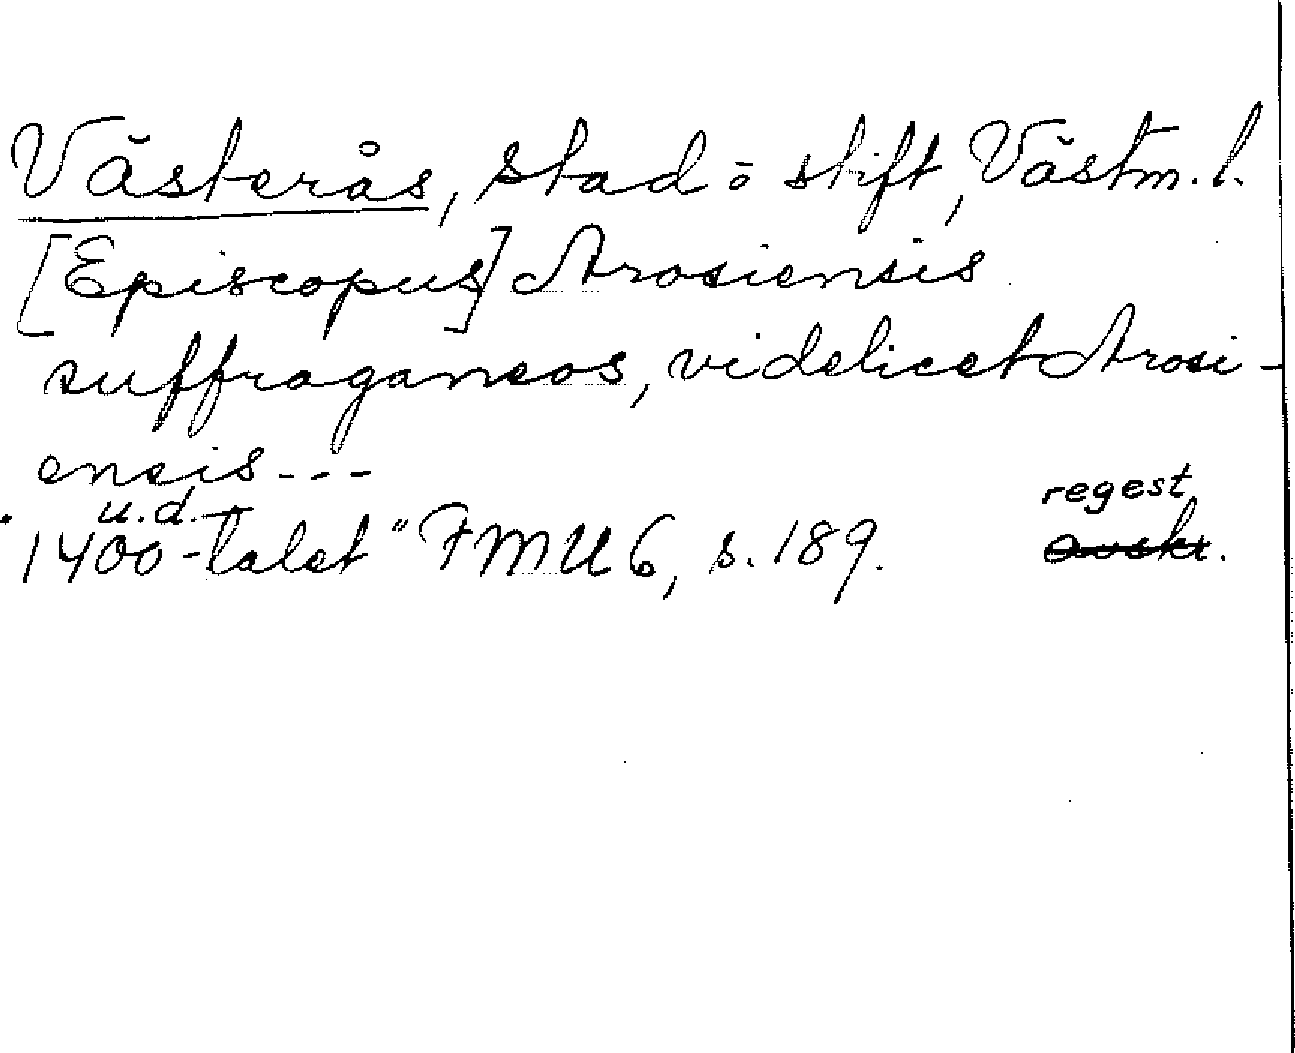 Västerås, stad o stift, Västm. l.
[Episcopus] Arosiensis
suffraganeos, videlicet Arosi-
ensis---
u.d.
regest
1400-talet" FMU 6, s. 189. avskr.